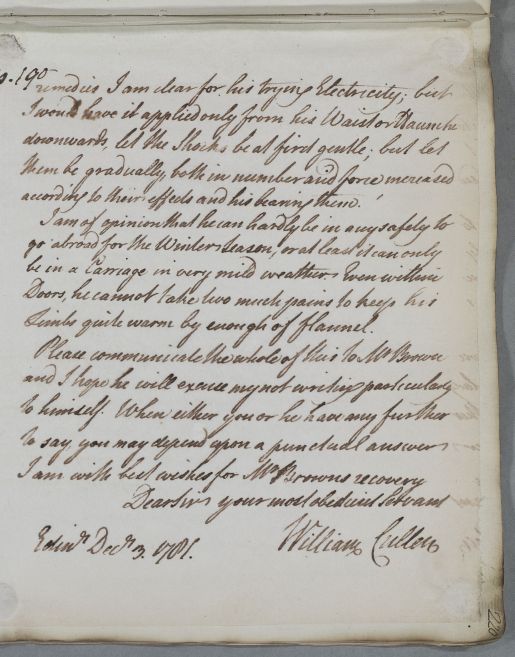 190
remedies I am clear for his trying Electricity; but
I would have it applied only from his Waist or Haunch
downwards, let the Shocks be at first gentle; but let
them be gradually, both in number and force increased
according to their effects and his bearing them.
I am of opinion that he can hardly be in any safety to
go abroad for the Winter Season, or at least it can only
be in a Carriage in very mild weather. Even within
Doors, he cannot take two much pains to keep his
Limbs quite warm by enough of flannel.
Please communicate the whole of this to Mr Brown
and I hope he will excuse my not writing particularly
to himself. When either you or he have any further
to say, you may depend upon a punctual answer
I am with best wishes for Mr Browns recovery
Dear Sir your most obedient Servant
Edinr. Decr. 3. 1781. William Cullen
220